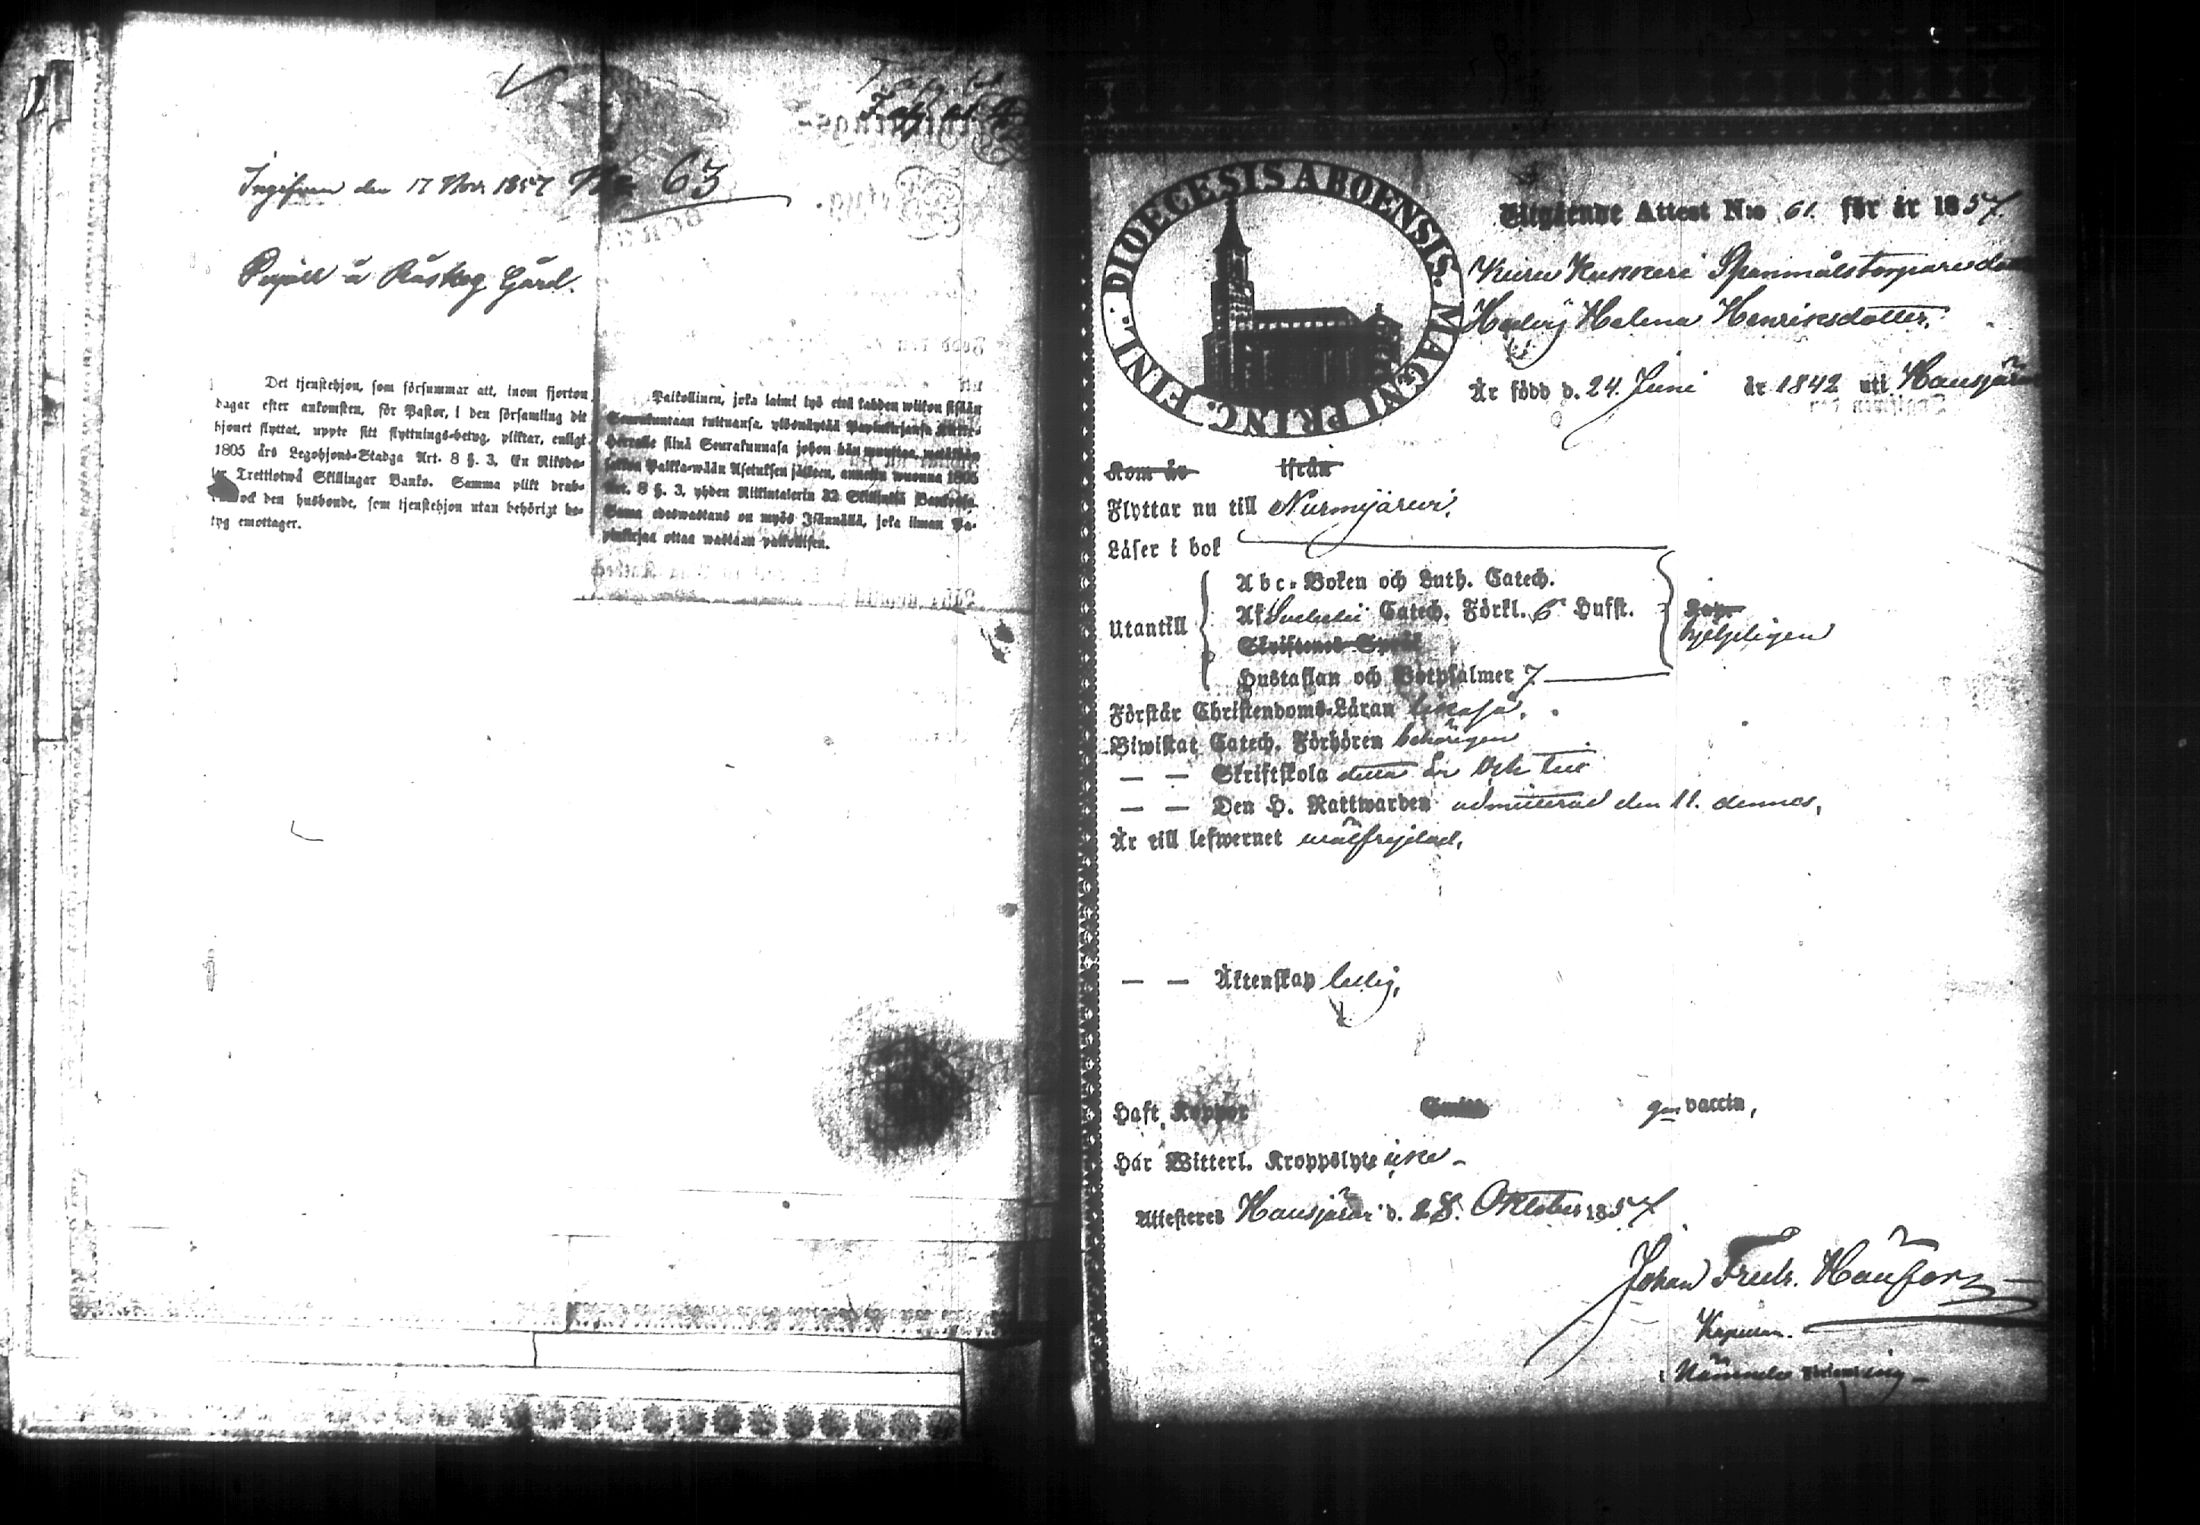 Ingifven den 17 Nov. 1857 No 63
Pigall å Råskog Gård.
Det tjenstehjon, som försummar att, inom fjorton
dagar efter ankomsten, för Pastor, i den församling dit
hjonet flyttat, uppte sitt flyttnings-betyg, pliktar, enligt
1805 års Legohjons-Stadga Art. 8 §. 3, En Riksda-
ler Trettiotwå Skillingar Banko. Samma plikt drab-
ock den husbonde, som tjenstehjon utan behörigt be-
tyg emottager.
Palkollinen, joka laimi lyö että kahden wiikon sisään
Seurakuntaan tultuansa, ylösnäytää Papinkirjansa Kirkko-
herralle siinä Seurakunnasa johon hän muuttaa,
Palkka-wään Asetuksen jälkeen, annettu wuonna 1805
Art. 8 §. 3, yhden Riikintalerin 32 Skillinkiä Bankosa.
Sama edeswastaus on myös Isännällä, joka ilman Pa-
pinkirjaa ottaa wastaan palkollisen.
DIOECESIS ABOENSIS. MAGNI PRINC. FINL.
Utgående Attest N:o 61. för år 1857.
Kuru Kukkeri Spanmålstorparedotter
Hedvig Helena Henriksdotter.
Är född d. 24. Juni år 1842 uti Hausjärvi
Kom år ifrån
Flyttar nu till Nurmijärvi.
Läser i bok
Abc-Boken och Luth. Catech.
Utantill Af Svebelii Catech. Förkl. 6 Hufst.
hjelpligen
Skriftenes Språk
Hustaflan och Botpsalmer 7
Förstår Christendoms-Läran likaså.
Biwistat Catech. Förhören behörigen
— — Skriftskola detta år och till
— — Den H. Nattwarden admitterad den 11. dennes,
Är till lefwernet wälfrejdad.
— — Äktenskap ledig,
Haft Koppor vaccin,
Har Witterl. Kroppslyte icke –
Attesteres Hausjärvi d. 28. Oktober 1857
Johan Fredr. Häufors
Kapellan.